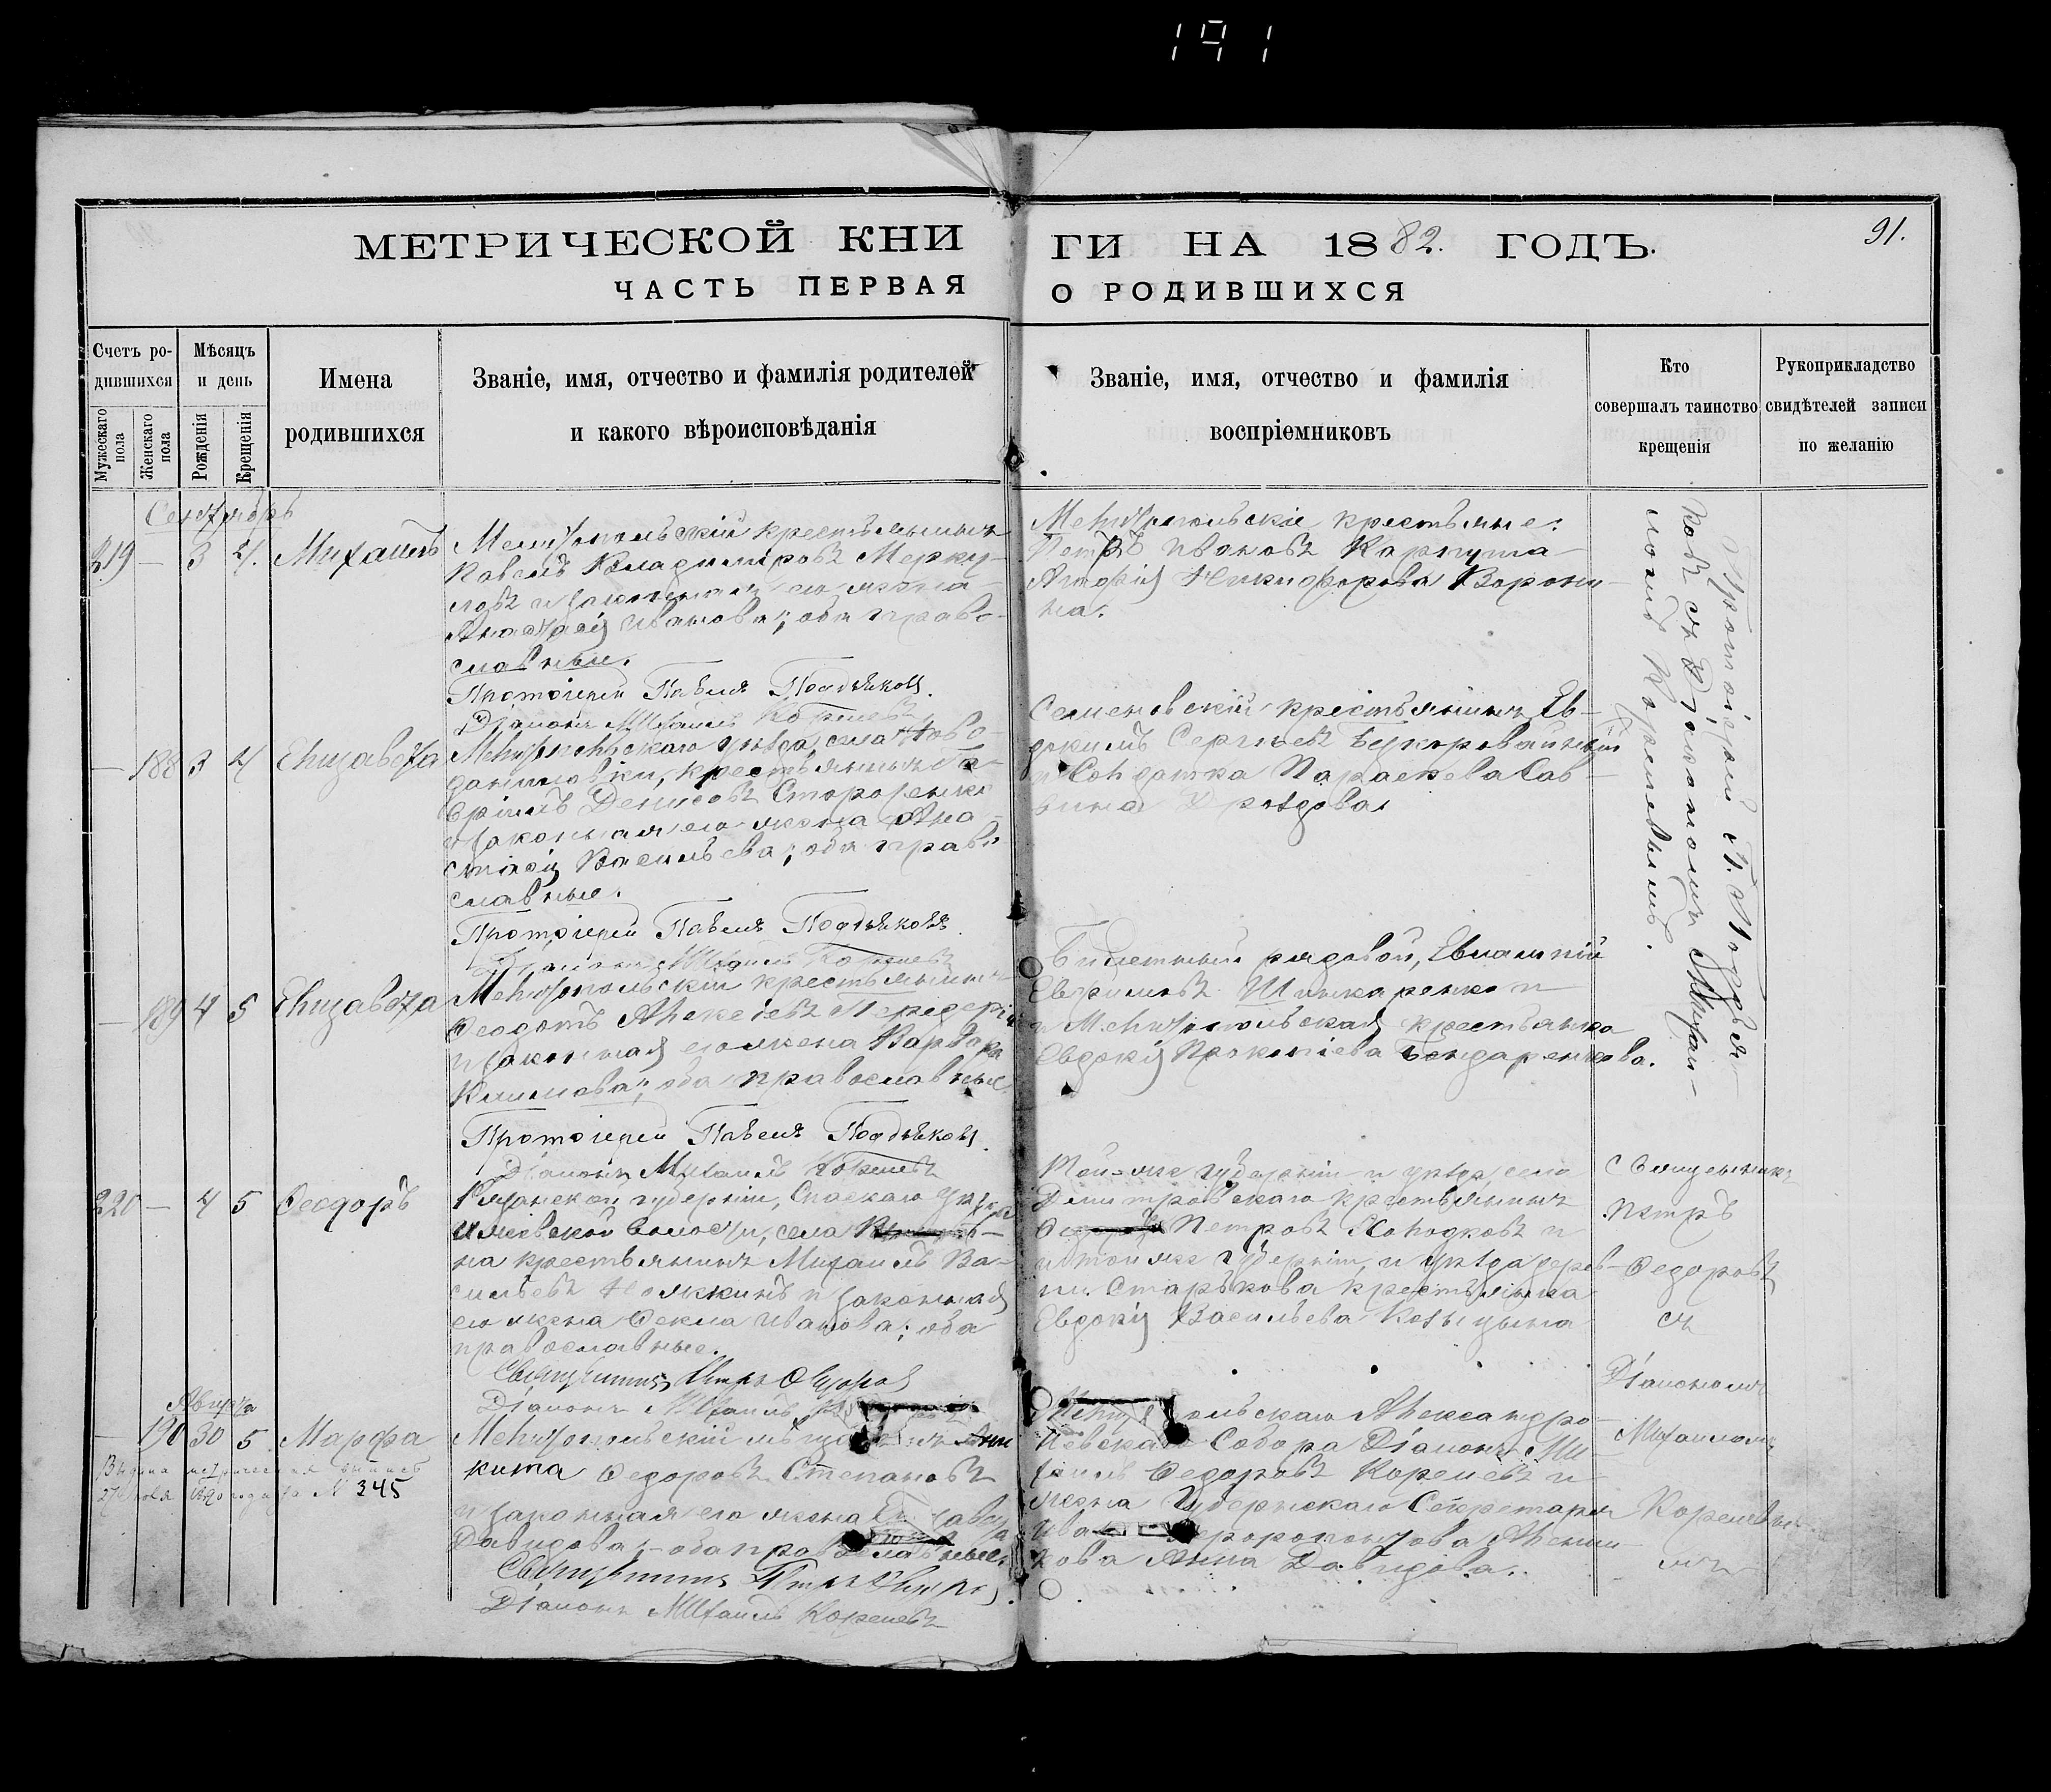 191
МЕТРИЧЕСКОЙ КНИ
ГИ НА 1882. ГОДЪ.
91.
ЧАСТЬ ПЕРВАЯ
О РОДИВШИХСЯ
Счетъ ро-
дившихся
Мужескаго пола
Женскаго пола
Мѣсяцъ
и день
Рожденія
Крещенія
Имена
родившихся
Званіе, имя, отчество и фамилія родителей
и какого вѣроисповѣданія
Званіе, имя, отчество и фамилія
воспріемниковъ
Кто
совершалъ таинство
крещенія
Рукоприкладство
свидѣтелей записи
по желанію
Сентябрь
219 — 3 4. Михаилъ
Мелитопольскій крестьянинъ
Павелъ Владиміровъ Мерку-
ловъ и законная его жена
Анастасія Иванова; оба право-
славные.
Протоіерей Павелъ Поддьяковъ.
Діаконъ Михаилъ Кореневъ
Мелитопольскіе крестьяне:
Петръ Ивановъ Карпуша
Агафія Никифорова Ворони-
на.
Протоіерей П. Поддья-
ковъ съ Діакономъ Михаи-
ломъ Кореневымъ.
— 188 3 4 Елизавета
Мелитопольскаго уѣзда, села Ново-
даниловки, крестьянинъ Га-
вріилъ Денисовъ Стороженко
и законная его жена Ана-
стасія Васильева; оба право-
славные.
Протоіерей Павелъ Поддьяковъ.
Діаконъ Михаилъ Кореневъ
Семеновскій крестьянинъ Ев-
докимъ Сергѣевъ
и Солдатка Параскева Сав-
вина Дроздова
— 189 4 5 Елизавета
Мелитопольскій крестьянинъ
Феодотъ Алексѣевъ Передерій
и законная его жена Варвара
Климова; оба православные
Протоіерей Павелъ Поддьяковъ.
Діаконъ Михаилъ Кореневъ
Билетный рядовой, Евлампій
Ефимовъ Шинкаренко и
и Мелитопольская крестьянка
Евдокія Прокопіева Бондаренкова.
220 — 4 5 Феодоръ
Рязанской губерніи, Спаскаго уѣзда
волости, села
на крестьянинъ Михаилъ Ва-
сильевъ Ножкинъ и законная
его жена Фекла Иванова; оба
православные.
Священникъ Петръ Федоровъ
Діаконъ Михаилъ
Той-же губерніи и уѣзда, села
Дмитровскаго крестьянинъ
Петровъ Холодковъ и
и той же губерніи и уѣзда дерев-
ни Старькова крестьянка
Евдокія Васильева
Священникъ
Петръ
Федоровъ
съ
Діакономъ
Михаиломъ
Кореневы-
мъ
Августа
— 190 30 5 Марфа
Выдана метрическая выпись
27 Іюля № 345
Мелитопольскій мѣщанинъ Ани
кита Федоровъ Степановъ
и законная его жена Елизавета
Давидова; оба православные.
Священникъ Петръ Федоровъ
Діаконъ Михаилъ Кореневъ
Мелитопольскаго Александро-
Невскаго Собора Діаконъ Ми
хаилъ Федоровъ Кореневъ и
жена Губернскаго Секретаря
Анна Давидова.